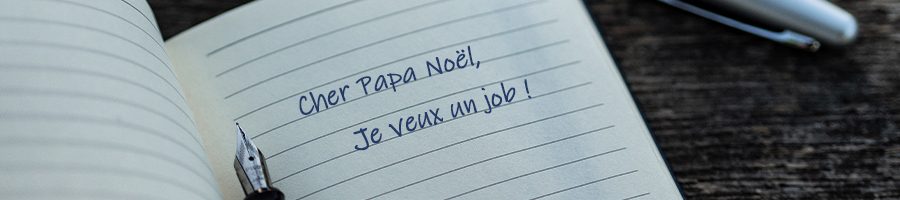 Cher Papa Noël,
Je veux un job !